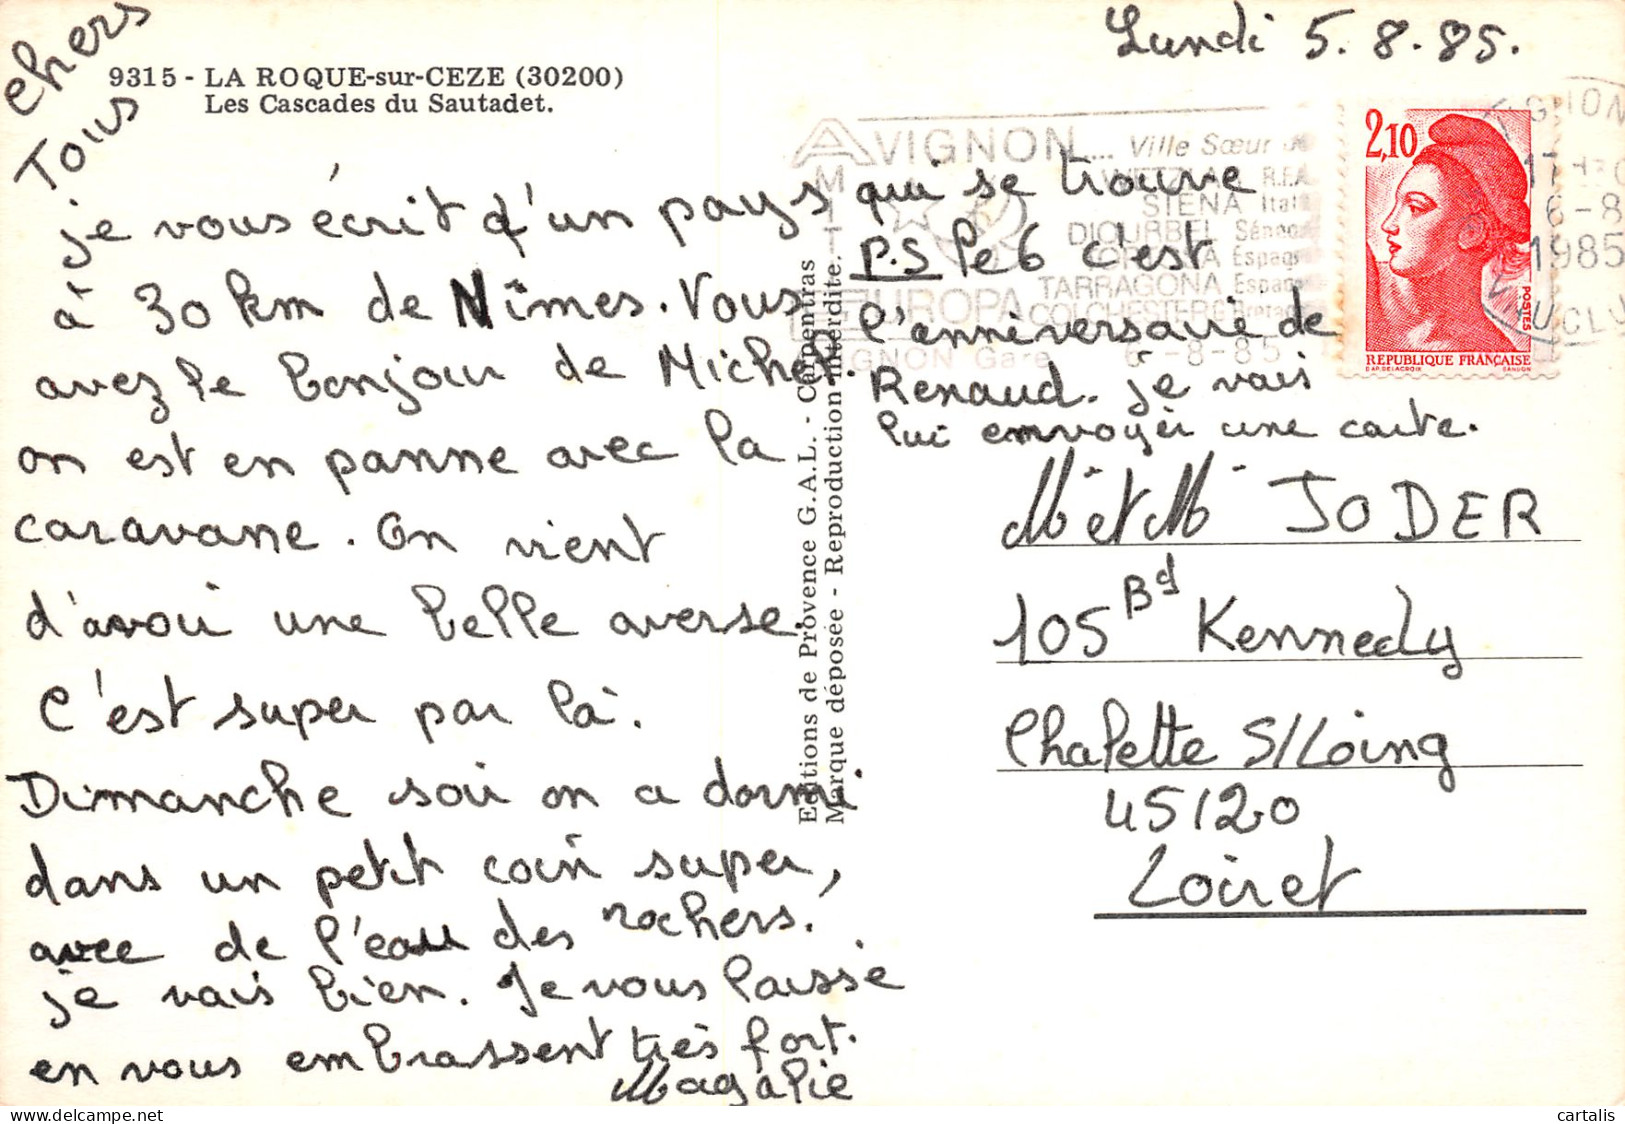 chers
Tous
9315 - LA ROQUE-sur-CEZE (30200)
Les Cascades du Sautadet.
Lundi 5.8.85.
je vous écrit d'un pays qui se trouve
à 30 km de Nîmes. Vous
avez le bonjour de Michel.
on est en panne avec la
caravane. On vient
d'avoir une belle averse.
C'est super par là.
Dimanche soir on a dormi
dans un petit coin super,
avec de l'eau des rochers.
je vais bien. Je vous laisse
en vous embrassent très fort.
Magalie
P.S le 6 c'est
l'anniversaire de
Renaud. je vais
lui envoyer une carte.
Editions de Provence G.A.L. - Carpentras
Marque déposée - Reproduction interdite.
AVIGNON... Ville Sœur
SIENA Ital
DIOURBEL
TARRAGONA Espag
COLCHESTER G Bretag
EUROPA
AVIGNON Gare 6-8-85
2,10
POSTES
REPUBLIQUE FRANÇAISE
D'AP. DELACROIX GANDON
AVIGNON
17H
6-8
1985
VAUCLU
M. et M JODER
105 Bd Kennedy
Chalette S/Loing
45120
Loiret
cartalis